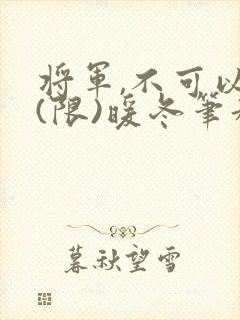 將軍,不可以
(限)暖冬筆
暮秋望雪